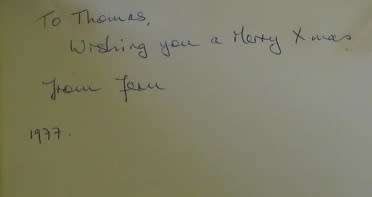 To Thomas,
Wishing you a Merry Xmas
From Fern
1977.